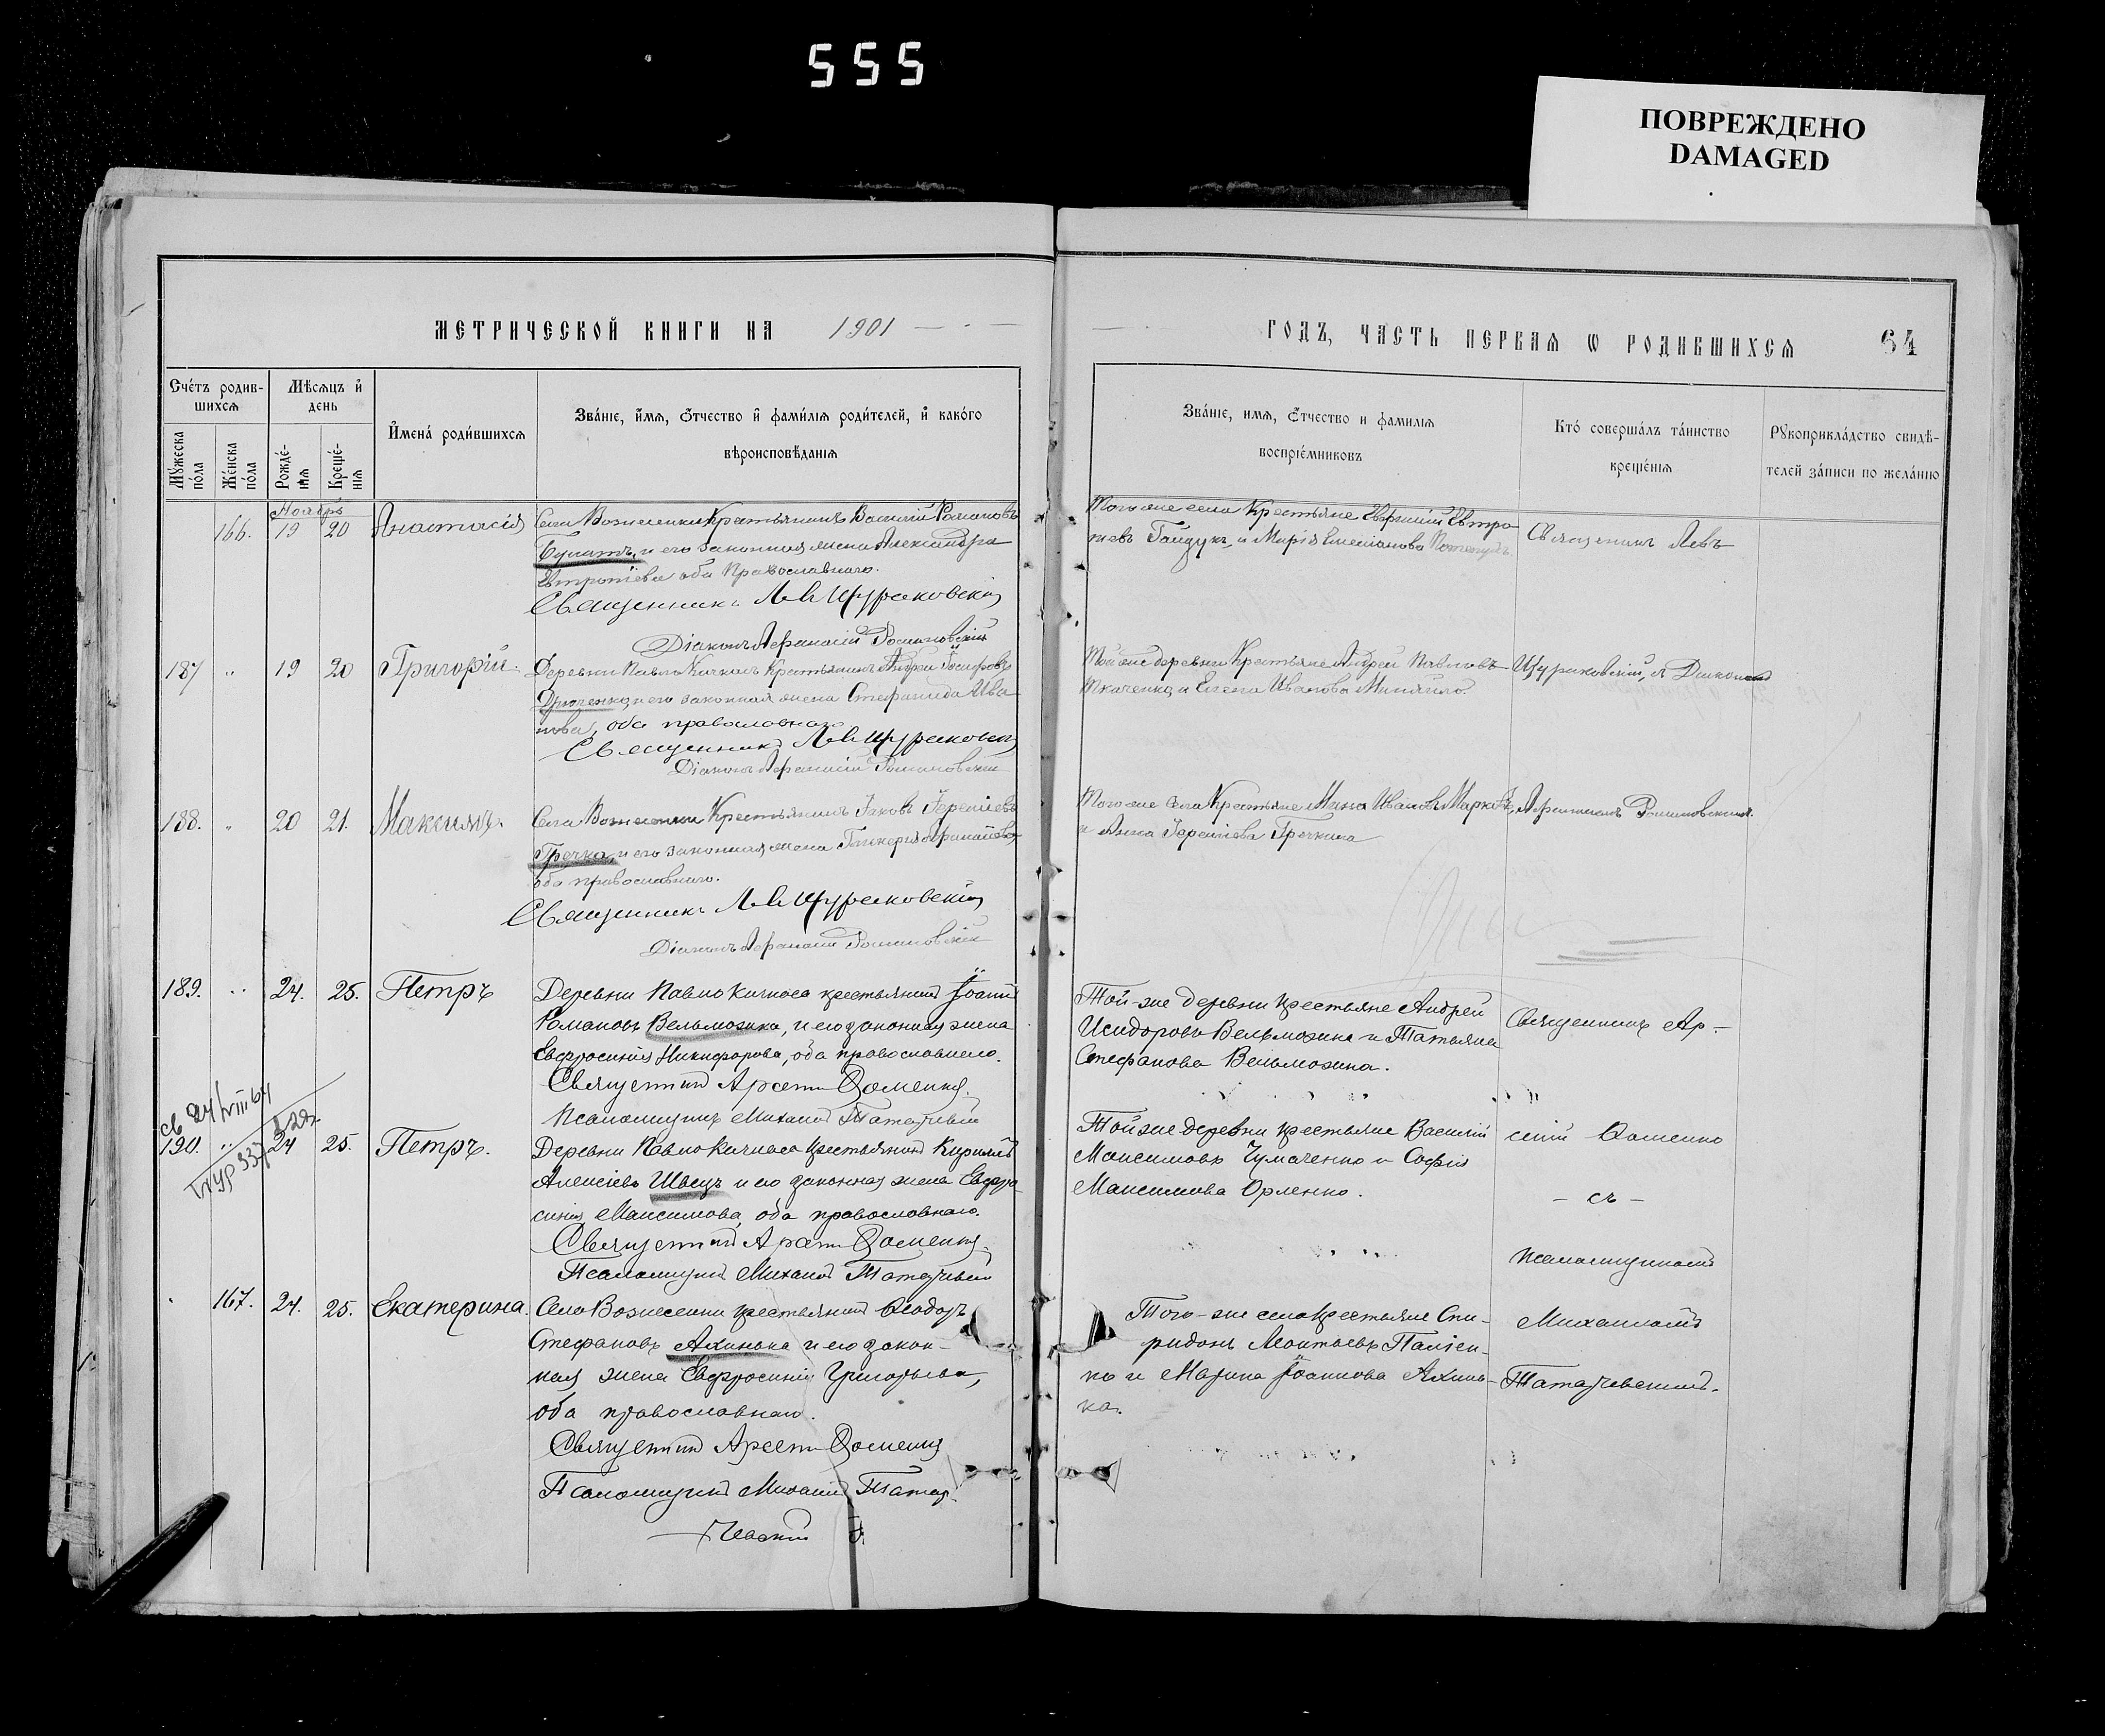 555
ПОВРЕЖДЕНО
DAMAGED
МЕТРИЧЕСКОЙ КНИГИ НА 1901
ГОДЪ, ЧАСТЬ ПЕРВАЯ Ѡ РОДИВШИХСЯ 64
Счётъ родив-
шихся
Мѣсяцъ и
день
Мужеска пола
Женска пола
Рожде-
нія
Креще-
нія
Имена родившихся
Званіе, имя, отчество и фамилія родителей, и какого
вѣроисповѣданія
Званіе, имя, отчество и фамилія
воспріемниковъ
Кто совершалъ таинство
крещенія
Рукоприкладство свидѣ-
телей записи по желанію
Ноябрь
166. 19 20 Анастасія
Села Вознесенки Крестьянинъ Василій Романовъ
и его законная жена Александра
Евтропіева оба Православнаго.
Священникъ Левъ Щураковскій
Діаконъ Афанасій
Того же села Крестьяне Евтро
піевъ Гайдукъ, и Марія Емеліанова
Священникъ Левъ
187 " 19 20 Григорій.
Деревни Павло Кичкасъ Крестьянинъ Андрей Іосифовъ
и его законная жена Стефанида Ива
нова, оба православнаго
Священникъ Левъ Щураковскій
Діаконъ Афанасій
Той же деревни Крестьяне Андрей Павловъ
Ткаченко, и Елена Иванова
Щураковскій, съ Діакономъ
188. " 20 21. Максимъ.
Села Вознесенки Крестьянинъ Іаковъ Іереміевъ
Гречка, и его законная жена Гликерія
оба православнаго.
Священникъ Левъ Щураковскій
Діаконъ Афанасій
Того же Села Крестьяне Мина Ивановъ
и Анна Іереміева Гречкина
Афанасіемъ
189. " 24. 25. Петръ
Деревни Павло Кичкаса крестьянинъ Іоаннъ
Романовъ Вельможка, и его законная жена
Евфросинія Никифорова, оба православнаго.
Священникъ Арсеній Фоменко
Псаломщикъ Михаилъ Татарчевскій
Той-же деревни крестьяне Андрей
Исидоровъ Вельможка и Татьяна
Стефанова Вельможка.
Священникъ Ар-
св 24/VIII 64
190. " 24 25. Петръ.
Деревни Павло Кичкаса крестьянинъ Кириллъ
Алексіевъ Швецъ и его законная жена Евфро
синія Максимова, оба православнаго.
Священникъ Арсеній Фоменко
Псаломщикъ Михаилъ Татарчевскій
Той же деревни крестьяне Василій
Максимовъ Чумаченко и Софія
Максимова Орленко.
сеній Фоменко
- съ -
псаломщикомъ
167. 24. 25. Екатерина.
Села Вознесенки крестьянинъ Ѳеодоръ
Стефановъ Ахинька и его закон-
ная жена Евфросинія Григорьева,
оба православнаго.
Священникъ Арсеній Фоменко
Псаломщикъ Михаилъ Татар-
чевскій
Того-же села крестьяне Спи-
ридонъ Леонтьевъ Паліен-
ко и Марина Іоаннова Ахинь-
ка.
Михаиломъ
Татарчевскимъ.